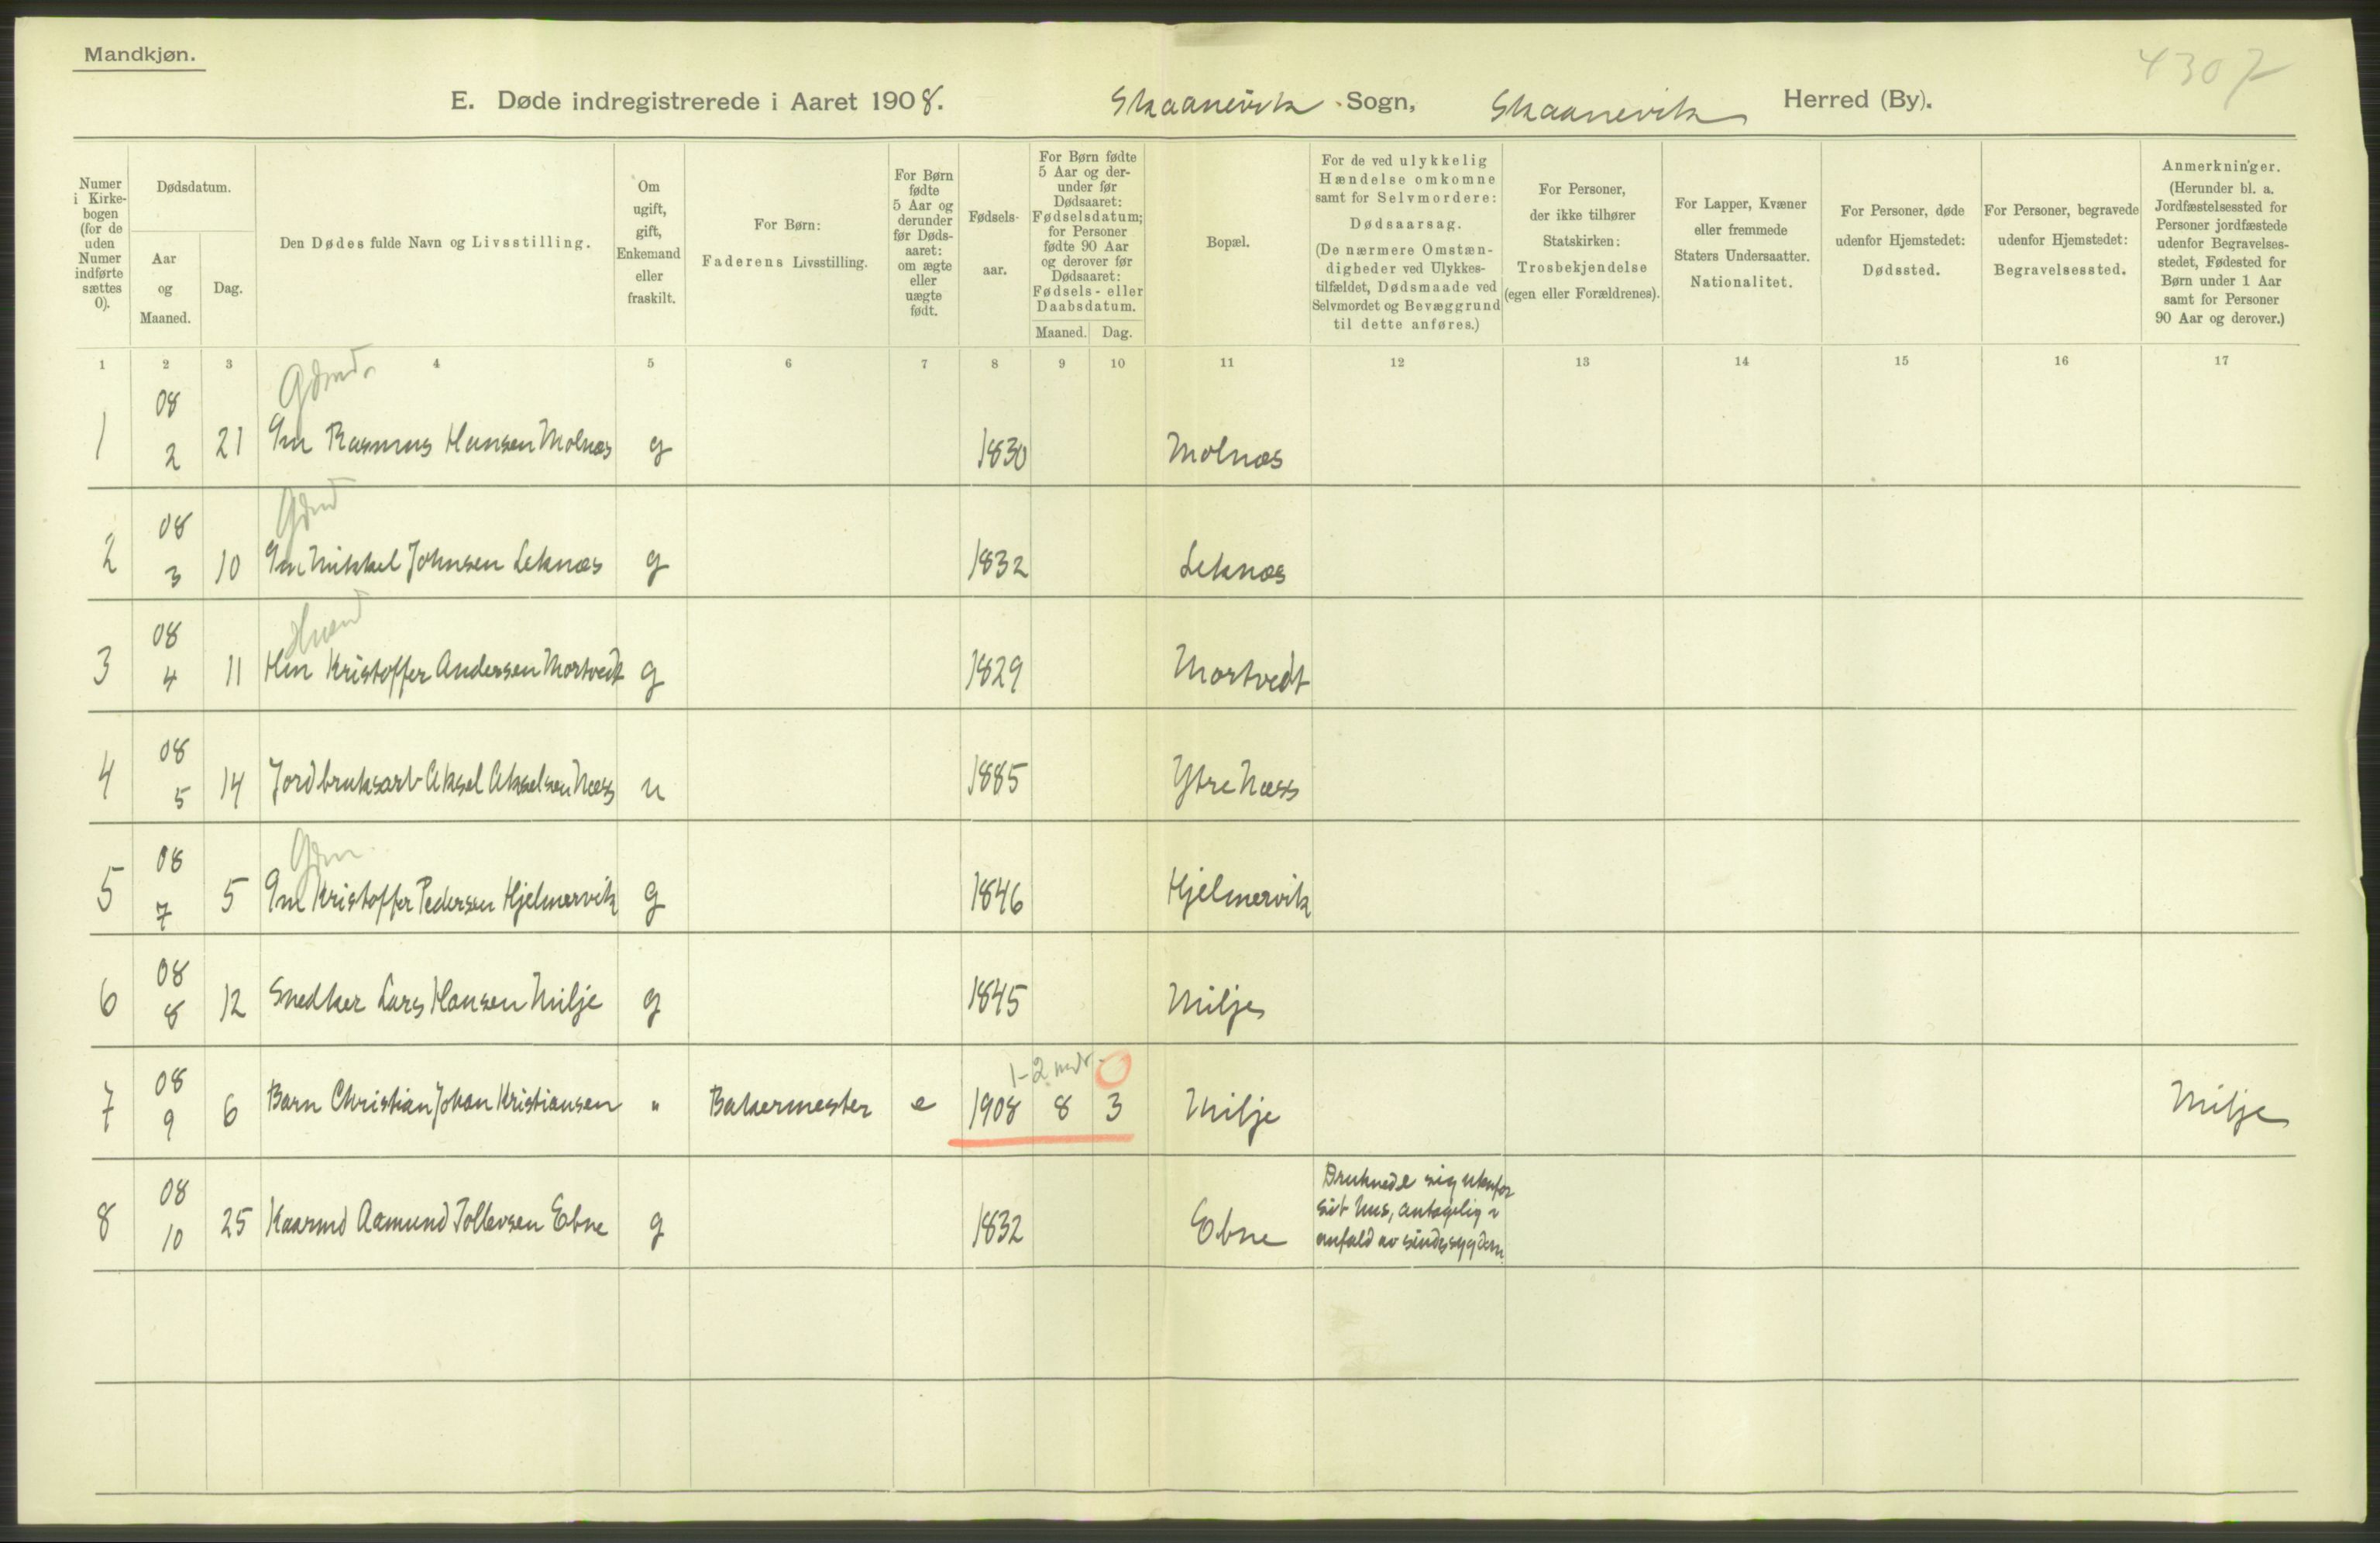 Mandkjøn.
4307
E. Døde indregistrerede i Aaret 1908. Skaanevik Sogn, Skaanevik Herred (By).
Numer i Kirkebogen (for de uden Numer indførte sættes 0).
Dødsdatum.
Aar og Maaned.
Dag.
Den Dødes fulde Navn og Livsstilling.
Om ugift, gift, Enkemand eller fraskilt.
For Børn: Faderens Livsstilling.
For Børn fødte 5 Aar og derunder før Dødsaaret: om ægte eller uægte født.
Fødselsaar.
For Børn fødte 5 Aar og derunder før Dødsaaret: Fødselsdatum; for Personer fødte 90 Aar og derover før Dødsaaret: Fødsels- eller Daabsdatum.
Maaned. Dag.
Bopæl.
For de ved ulykkelig Hændelse omkomne samt for Selvmordere: Dødsaarsag. (De nærmere Omstændigheder ved Ulykkestilfældet, Dødsmaade ved Selvmordet og Bevæggrund til dette anføres.)
For Personer, der ikke tilhører Statskirken: Trosbekjendelse (egen eller Forældrenes).
For Lapper, Kvæner eller fremmede Staters Undersaatter. Nationalitet.
For Personer, døde udenfor Hjemstedet: Dødssted.
For Personer, begravede udenfor Hjemstedet: Begravelsessted.
Anmerkninger. (Herunder bl. a. Jordfæstelsessted for Personer jordfæstede udenfor Begravelsesstedet, Fødested for Børn under 1 Aar samt for Personer 90 Aar og derover.)
1 2 3 4 5 6 7 8 9 10 11 12 13 14 15 16 17
1 08 2 21 Gm Rasmus Hansen Molnes g 1830 Molnes
2 08 3 10 Gm Mikkel Johnsen Leknes g 1832 Leknes
3 08 4 11 Hm Kristoffer Andersen Mortvedt g 1829 Mortvedt
4 08 5 14 Jordbruksarb Aksel Akselsen Næss u 1885 Ytre Næss
5 08 7 5 Gm Kristoffer Pedersen Hjelmervik g 1846 Hjelmervik
6 08 8 12 Snedker Lars Hansen Milje g 1845 Milje
1-2 mdr. 0
7 08 9 6 Barn Christian Johan Kristiansen " Bakermester e 1908 8 3 Milje Milje
8 08 10 25 Kaarmd Aamund Tollevsen Ebne g 1832 Ebne Druknede sig utenfor
sit hus, antagelig i
anfald av sindssygdom